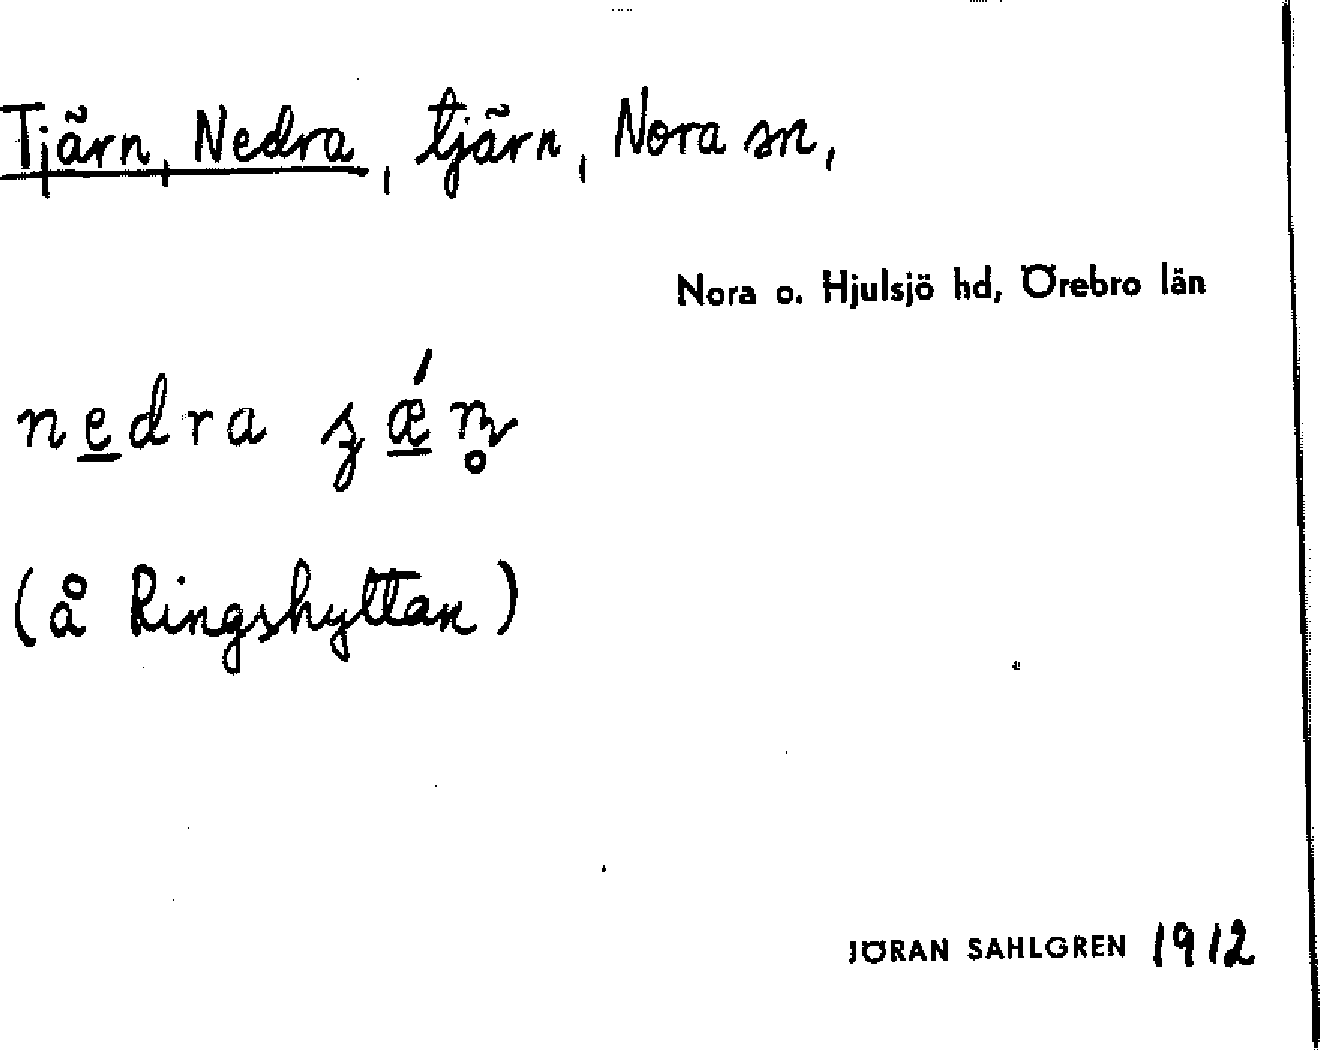 Tjärn, Nedra, tjärn, Nora sn,
Nora o. Hjulsjö hd, Örebro län
nedra
(å Ringshyttan)
JÖRAN SAHLGREN 1912